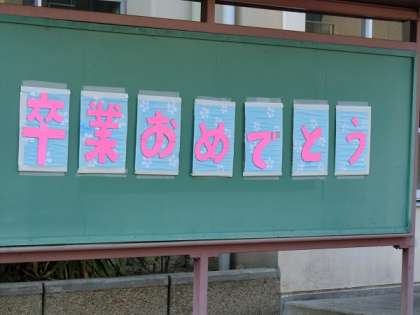 卒業おめでとう